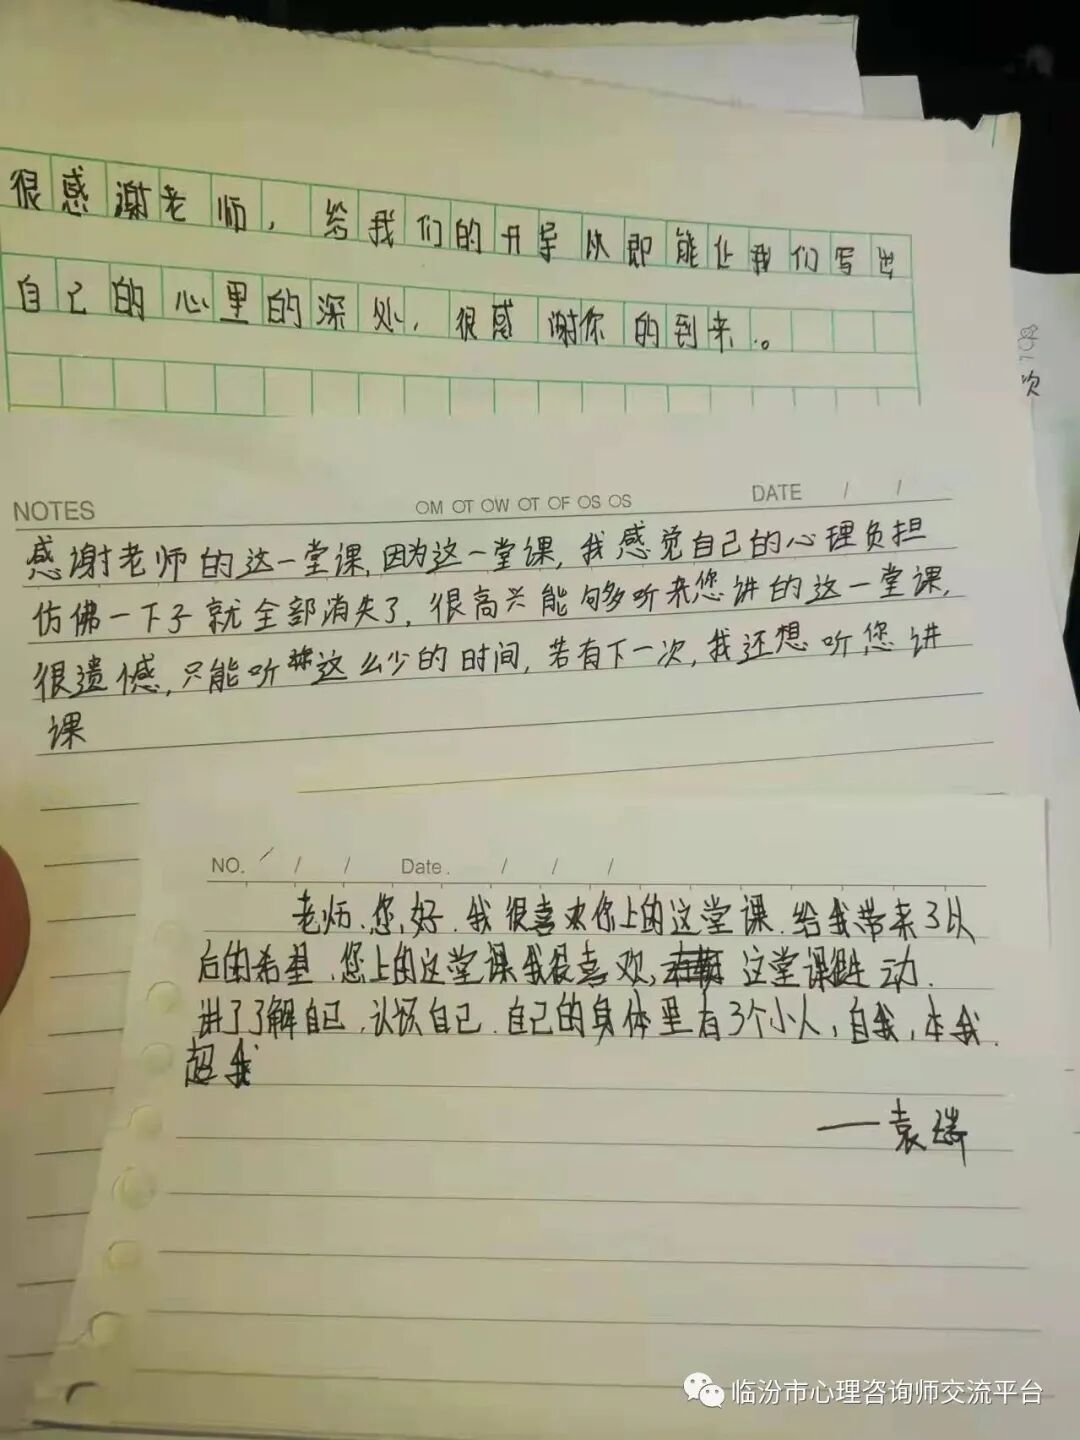 很感谢老师，给我们的开导以即能让我们写出
自己的心里的深处，很感谢你的到来。
次
NOTES OM OT OW OT OF OS OS DATE / /
感谢老师的这一堂课，因为这一堂课，我感觉自己的心理负担
仿佛一下子就全部消失了，很高兴能够听来您讲的这一堂课，
很遗憾，只能听这么少的时间，若有下一次，我还想听您讲
课
NO. / / / Date. / / /
老师，您，好，我很喜欢你上的这堂课，给我带来了以
后的希望，您上的这堂课我很喜欢，这堂课生动，
讲了了解自己，认 自己，自己的身体里有3个小人，自我，本我，
超我
——袁瑞
临汾市心理咨询师交流平台